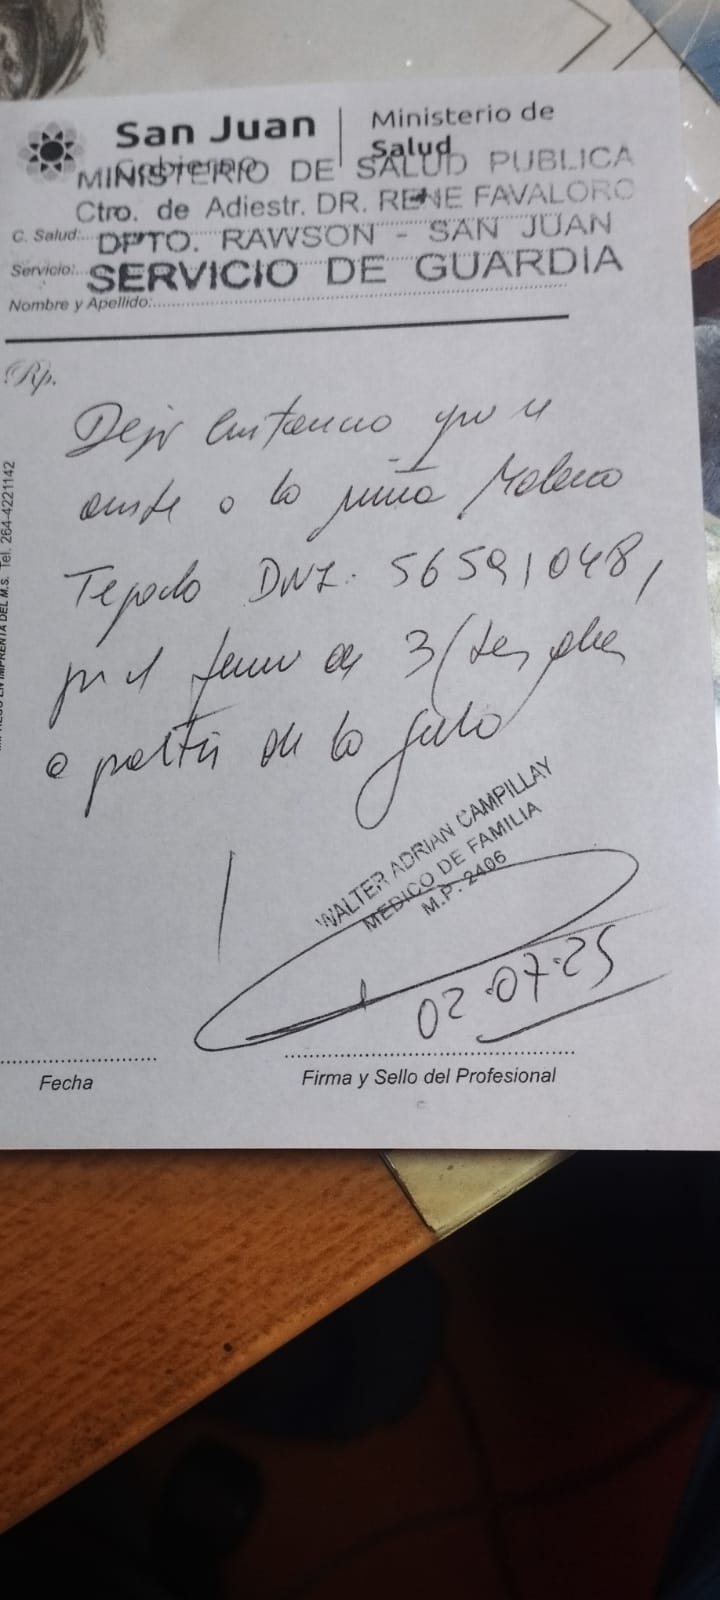 San Juan
Gobierno
Ministerio de
Salud
MINISTERIO DE SALUD PUBLICA
Ctro. de Adiestr. DR. RENE FAVALORO
C. Salud: DPTO. RAWSON - SAN JUAN
Servicio: SERVICIO DE GUARDIA
Nombre y Apellido:
Rp.
Dejo constancia que se
a la niña
Tejada DNI. 56591048,
por el termino de 3 (tres dias
a partir de la fecha
WALTER ADRIAN CAMPILLAY
MEDICO DE FAMILIA
M.P. 2406
02.07.25
Fecha
Firma y Sello del Profesional
IMPRESO EN IMPRENTA DEL M.S. Tel. 264-4221142